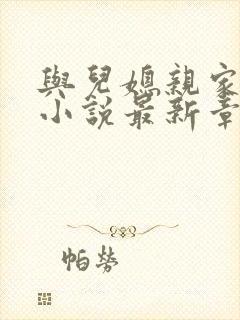 與兒媳親家
小說最新章
帕勞